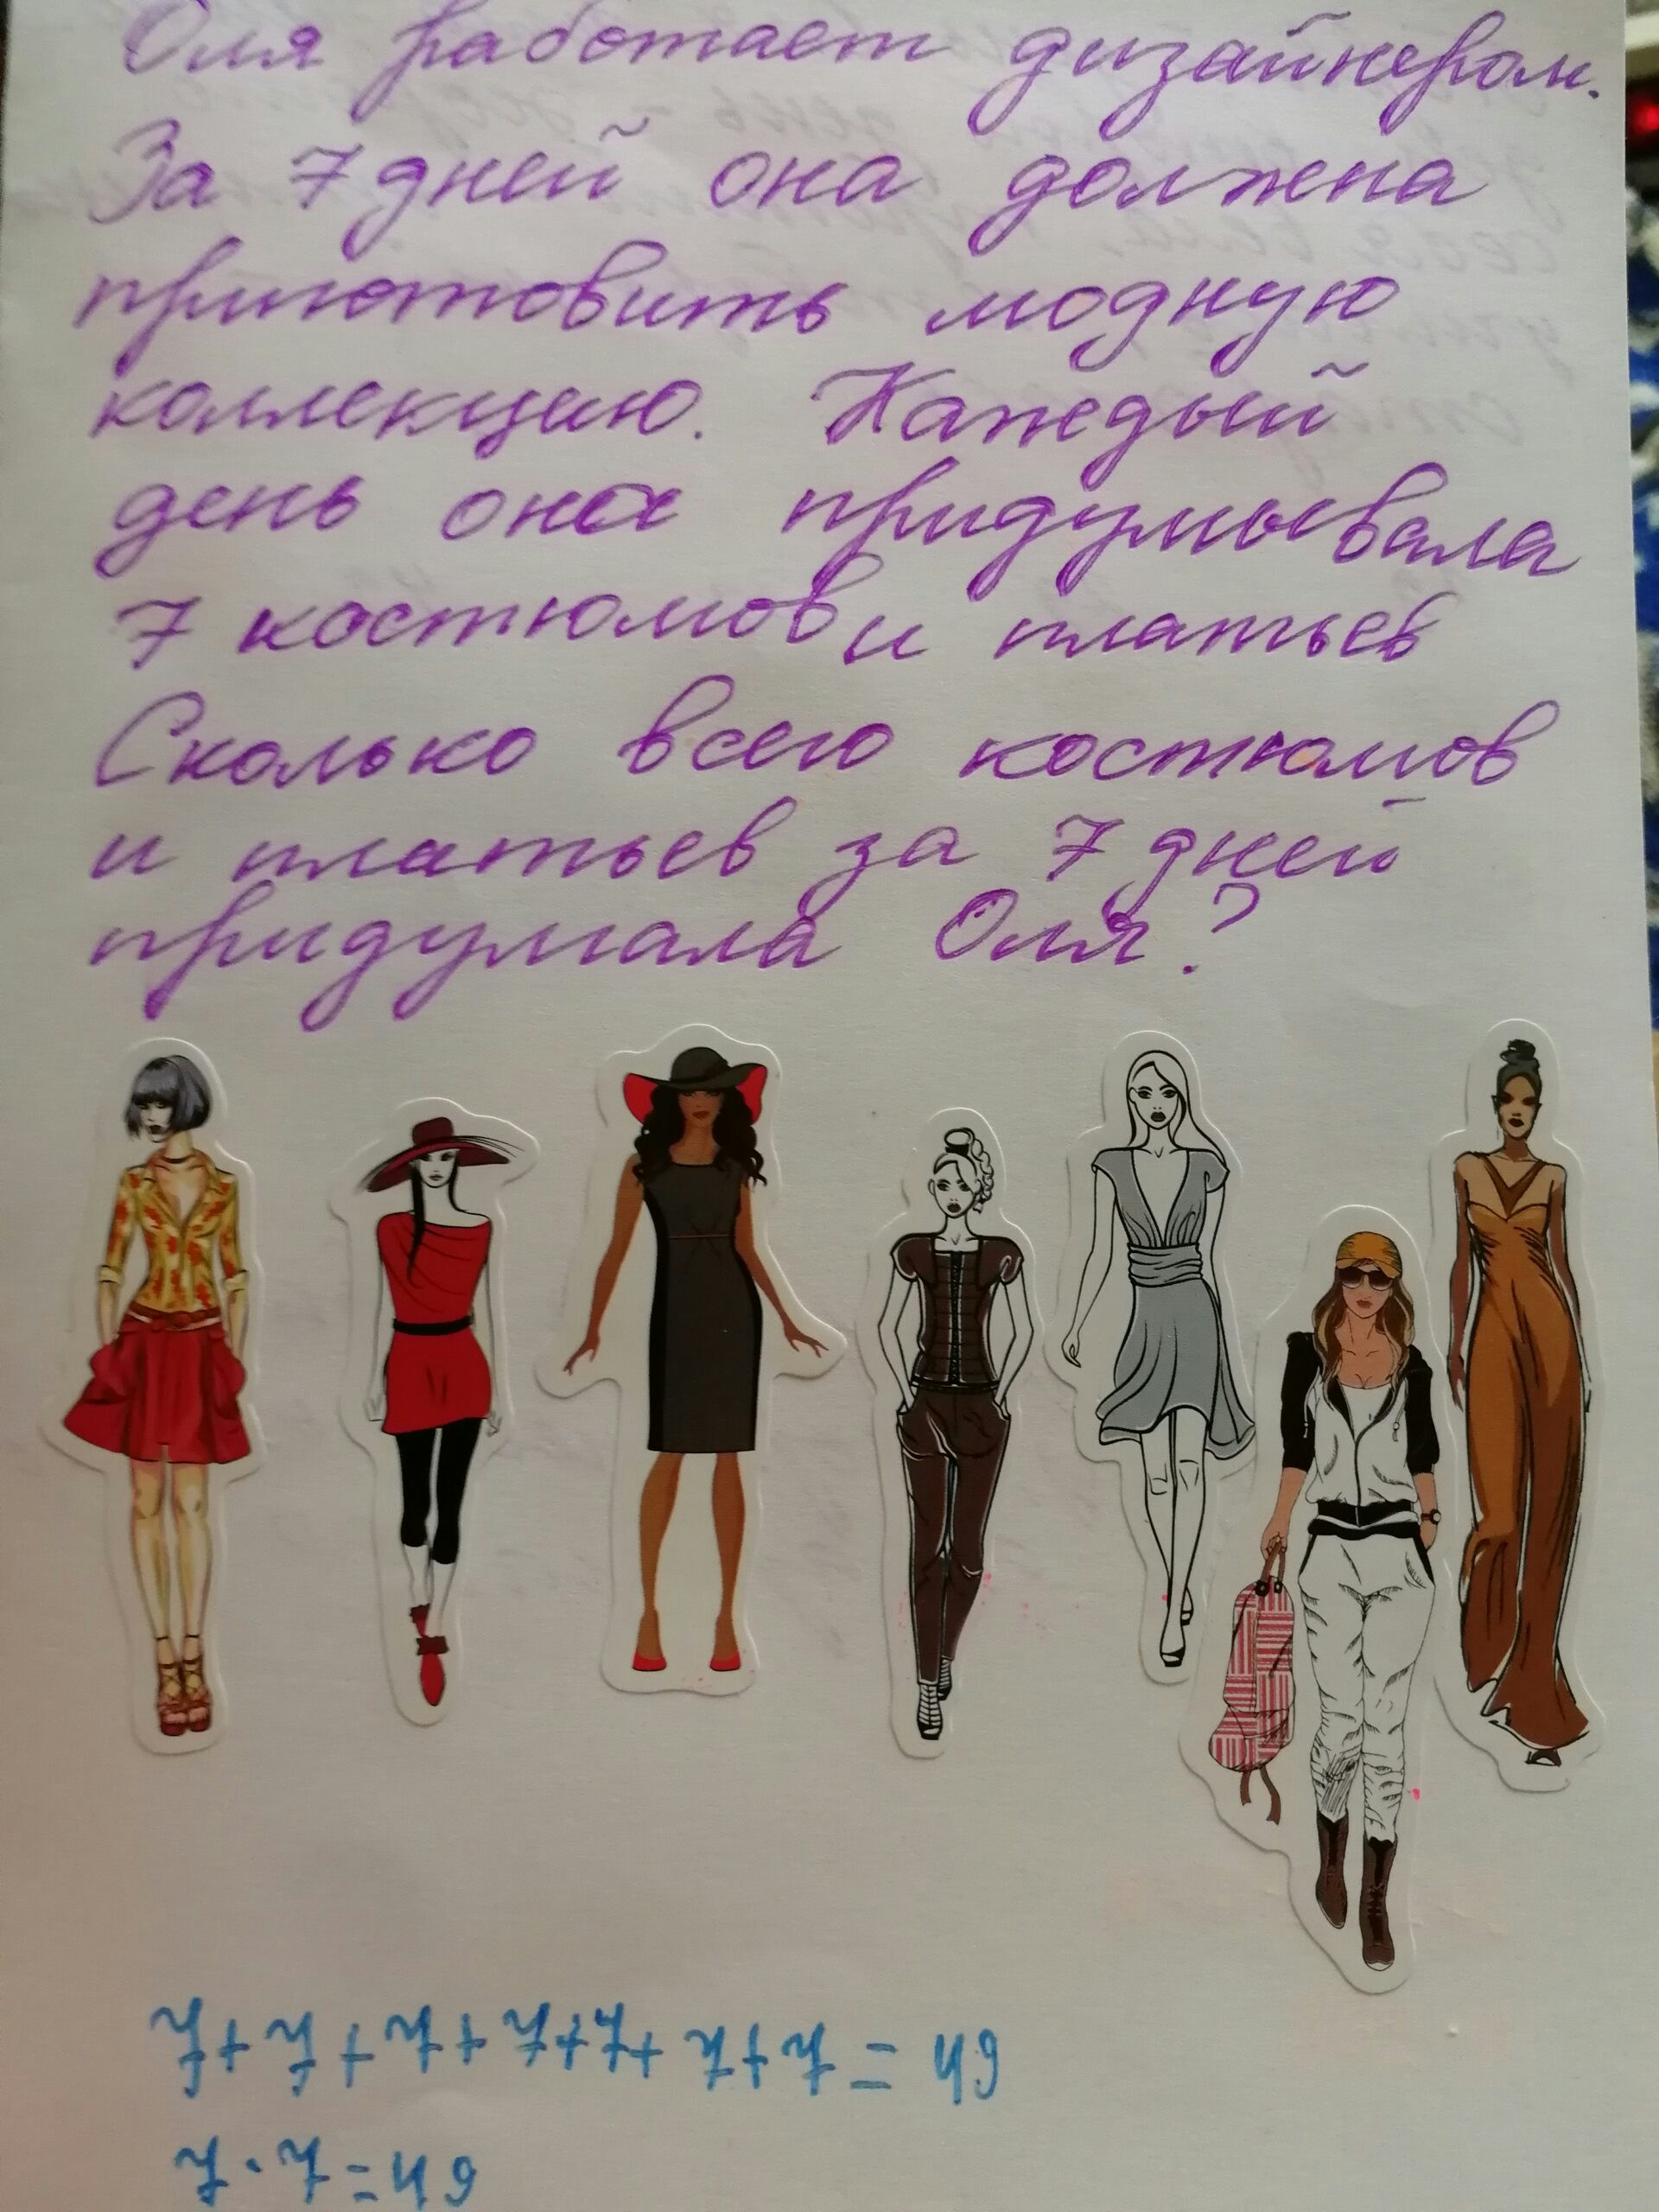 Оля работает дизайнером.
За 7 дней она должна
приготовить модную
коллекцию. Каждый
день она придумывала
7 костюмов и платьев
Сколько всего костюмов
и платьев за 7 дней
придумала Оля?
7+7+7+7+7+7+7=49
7·7=49